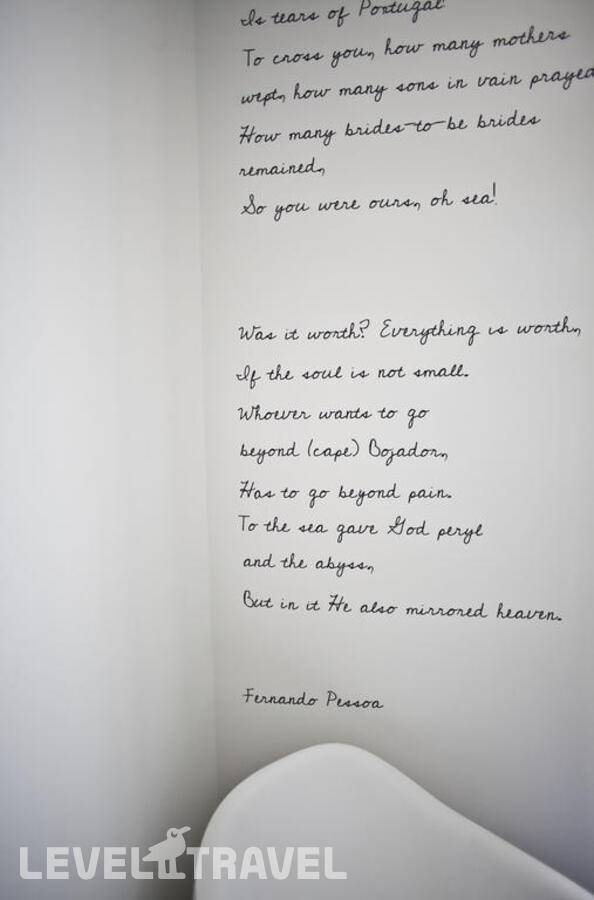 Is tears of Portugal
To cross you, how many mothers
wept, how many sons in vain prayed
How many brides-to-be brides
remained,
So you were ours, oh sea!
Was it worth? Everything is worth,
If the soul is not small.
Whoever wants to go
beyond (cape) Bojador,
Has to go beyond pain.
To the sea gave God peryl
and the abyss,
But in it He also mirrored heaven.
Fernando Pessoa
LEVEL TRAVEL